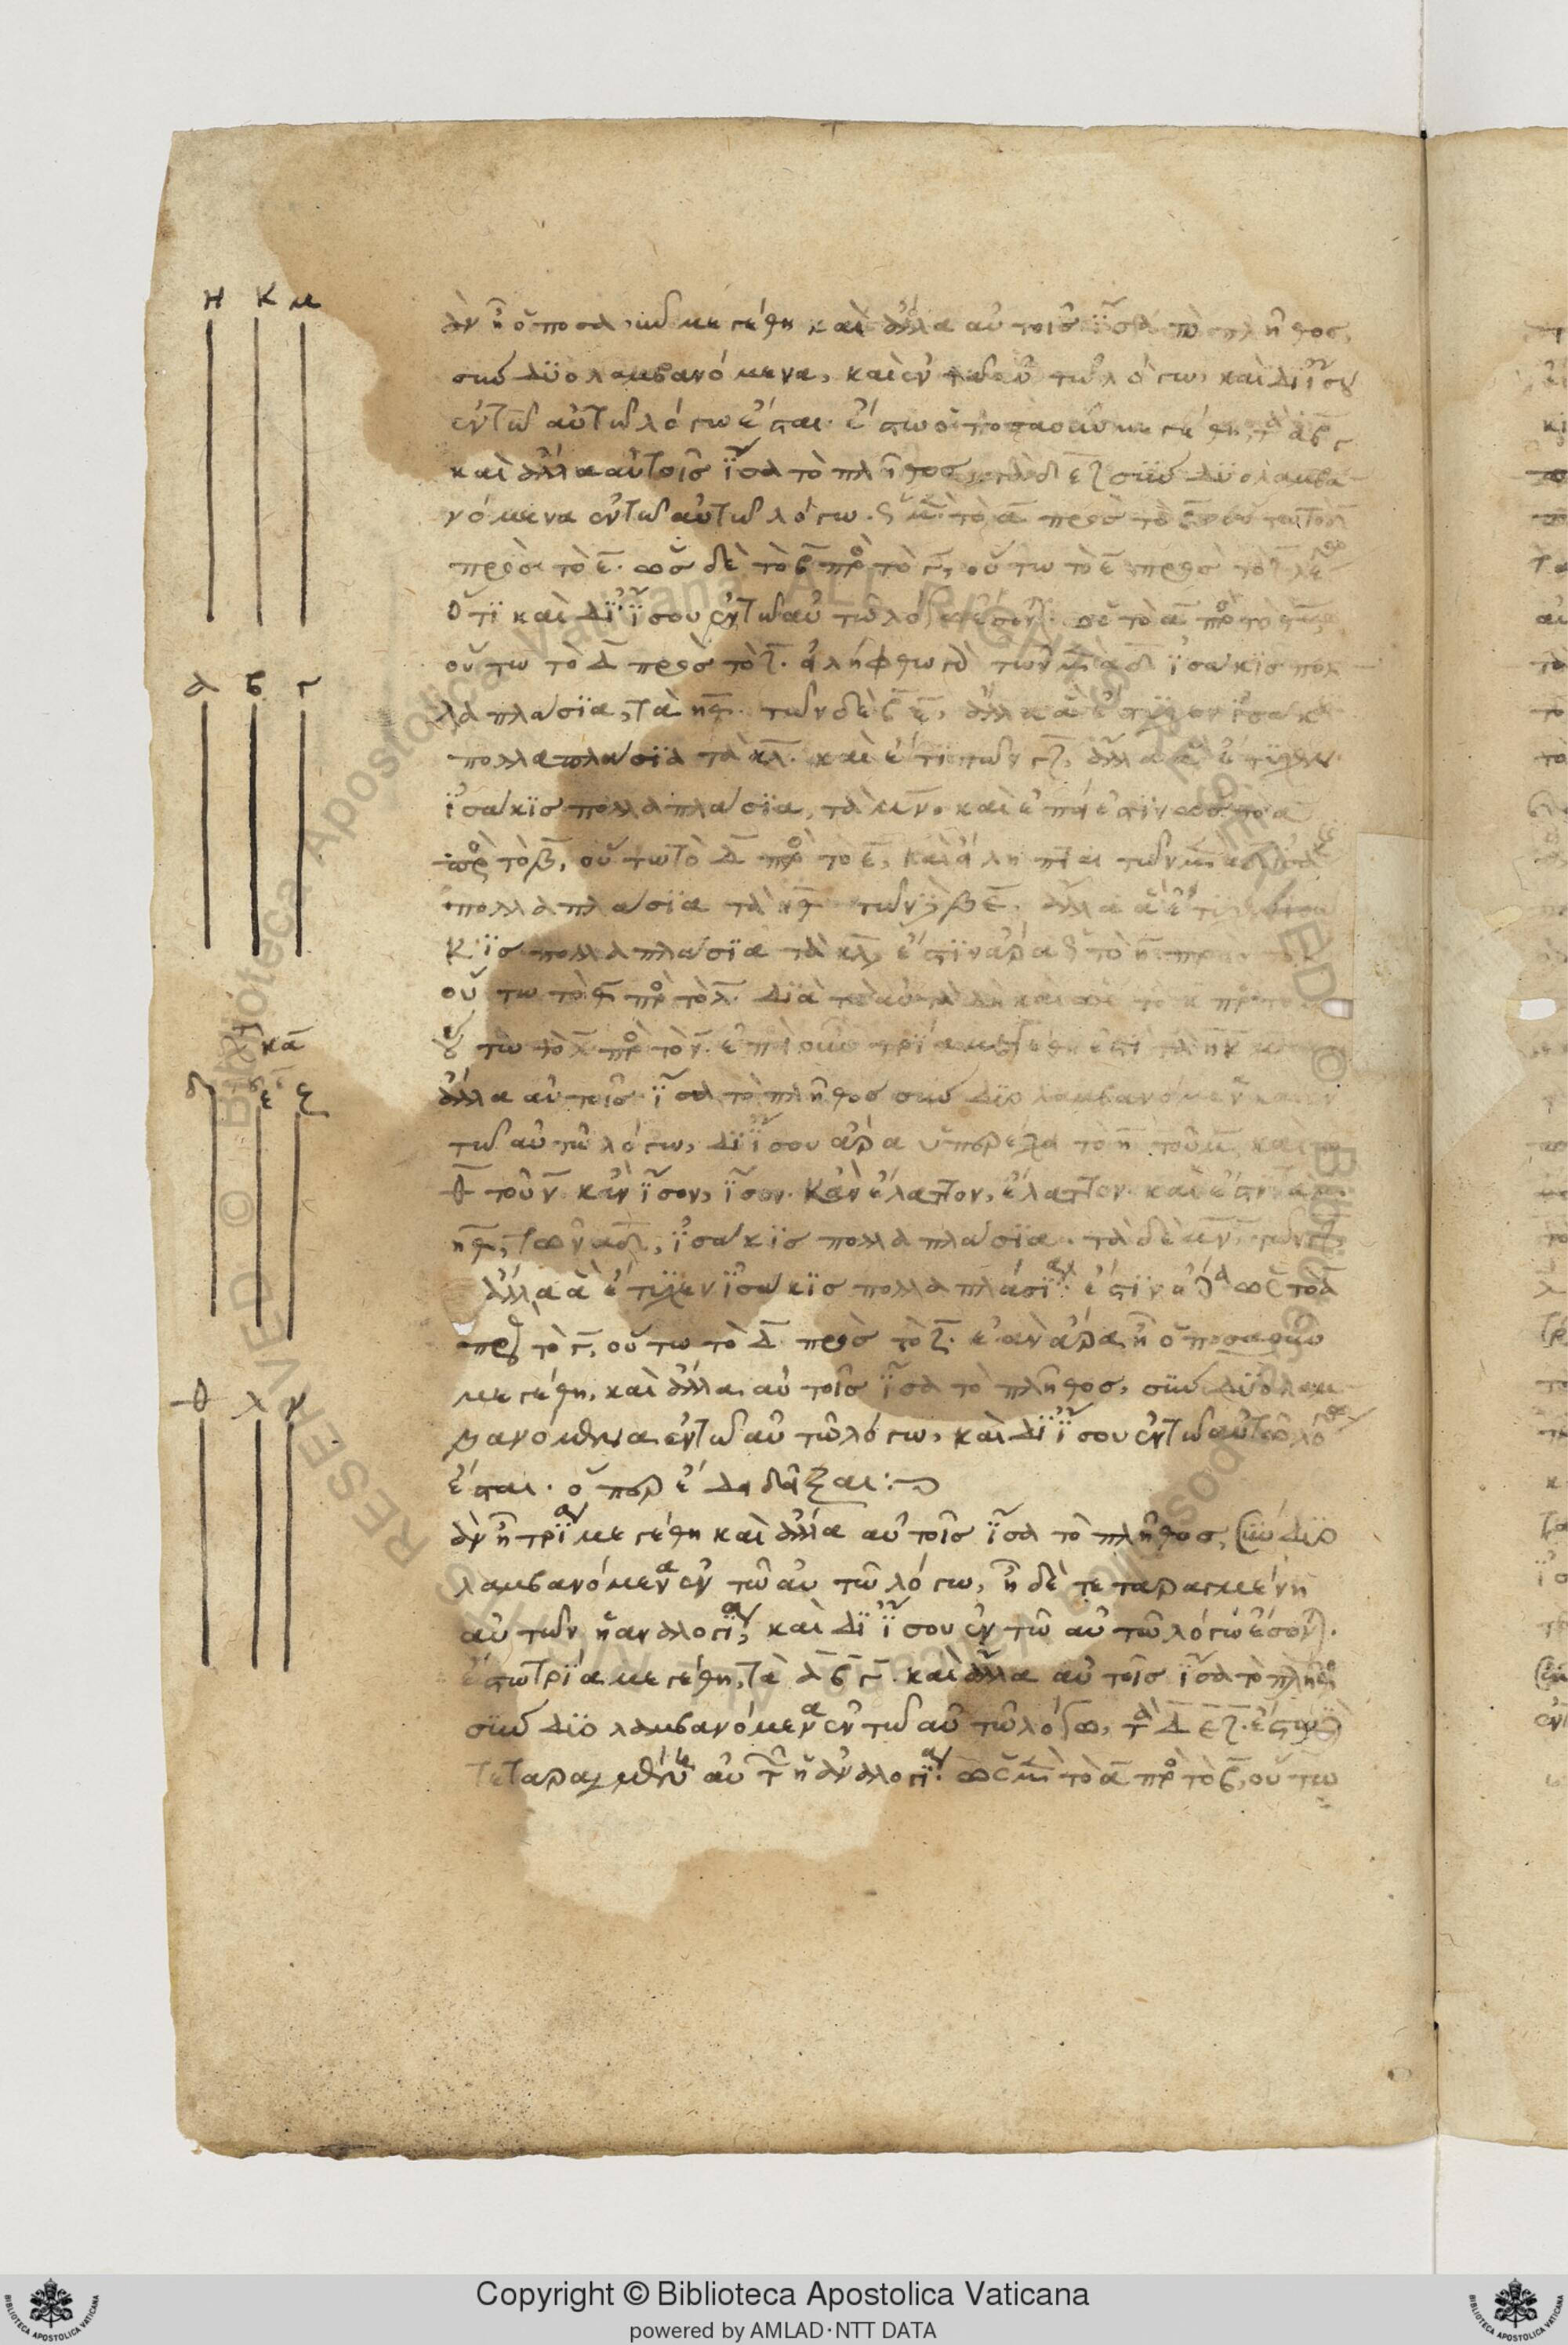 Η Κ Μ
ὰν ἦ ὁποσαοῦν μεγέθη καὶ ἄλλα αὐτοῖς ἴσα τὸ πλῆθος,
σὺν δύο λαμβανόμενα, καὶ ἐν τῶ αὐτῶ λόγω, καὶ δι ἴσου
ἐν τῶ αὐτῶ λόγω ἔσται. ἔστω ὁποσαοῦν μεγέθη, τὰ α β γ
καὶ ἄλλα αὐτοῖς ἴσα τὸ πλῆθος, τὰ δ ε ζ σὺν δύο λαμβα
νόμενα ἐν τῶ αὐτῶ λόγω. ὡς μ τὸ α πρὸς τὸ β οὕτω τὸ δ
πρὸς τὸ ε. ὡς δὲ τὸ β πρ τὸ γ, οὕτω τὸ ε πρὸς τὸ ζ λέγω
ὅτι καὶ δι ἴσου ἐν τῶ αὐτῶ λόγω ἔσονται. ὡς τὸ α πρ τὸ γ,
οὕτω τὸ δ πρὸς τὸ ζ. εἰλήφθω τῶν μ α δ ἰσάκις πολ
λαπλάσια, τὰ η θ. τῶν δὲ β ε, ἄλλα ἃ ἔτυχεν ἰσάκις
πολλαπλάσια τὰ κ λ. καὶ ἔτι τῶν γ ζ, ἄλλα ἃ ἔτυχεν
ἰσάκις πολλαπλάσια, τὰ μ ν. καὶ ἐπεί ἐστιν ὡς τὸ α
πρ τὸ β, οὕτω τὸ δ πρ τὸ ε, καὶ εἴληπται τῶν μ α δ ἰσάκις
πολλαπλάσια τὰ η θ τῶν δὲ β ε. ἄλλα ἃ ἔτυχεν ἰσά
κις πολλαπλάσια τὰ κ λ, ἔστιν ἄρα ὡς τὸ η πρὸς τὸ κ
οὕτω τὸ θ πρ τὸ λ. διὰ τὰ αὐτὰ δὴ καὶ ὡς τὸ κ πρ τὸ μ
οὕτω τὸ λ πρ τὸ ν. ἐπεὶ οὖν τρία μεγέθη ἐστὶ τὰ η κ μ καὶ
ἄλλα αὐτοῖς ἴσα τὸ πλῆθος σὺν δύο λαμβανόμενα καὶ ἐν
τῶ αὐτῶ λόγω, δι ἴσου ἄρα ὑπερέχει τὸ η τοῦ μ, καὶ τὸ
θ τοῦ ν κἂν ἴσον, ἴσον. κἂν ἔλαττον, ἔλαττον. καὶ ἔστι τὰ μ.
η θ, τῶν α δ, ἰσάκις πολλαπλάσια. τὰ δὲ μ ν τῶν γ ζ
ἄλλα ἃ ἔτυχεν ἰσάκις πολλαπλάσια. ἔστιν ἄρα ὡς τὸ α
πρὸς τὸ γ, οὕτω τὸ δ πρὸς τὸ ζ. ἐὰν ἄρα ἦ ὁποσαοῦν
μεγέθη, καὶ ἄλλα αὐτοῖς ἴσα τὸ πλῆθος, σὺν δύο λαμ
βανόμενα ἐν τῶ αὐτῶ λόγω, καὶ δι ἴσου ἐν τῶ αὐτῶ λόγω
ἔσται. ὅπερ ἔδει δεῖξαι:
ὰν ἦ τρία μεγέθη καὶ ἄλλα αὐτοῖς ἴσα τὸ πλῆθος, σὺν δύο
λαμβανόμενα ἐν τῶ αὐτῶ λόγω, ἦ δὲ τεταραγμένη
αὐτῶν ἡ ἀναλογία, καὶ δι ἴσου ἐν τῶ αὐτῶ λόγω ἔσονται.
ἔστω τρία μεγέθη, τὰ α β γ. καὶ ἄλλα αὐτοῖς ἴσα τὸ πλῆθος
σὺν δύο λαμβανόμενα ἐν τῶ αὐτῶ λόγω, τὰ δ ε ζ. ἔστω δὲ
τεταραγμένη αὐτῶν ἡ ἀναλογία. ὡς μ τὸ α πρ τὸ β, οὕτω
α β γ
κα
δ ε ζ
θ λ ν
Copyright © Biblioteca Apostolica Vaticana
powered by AMLAD·NTT DATA